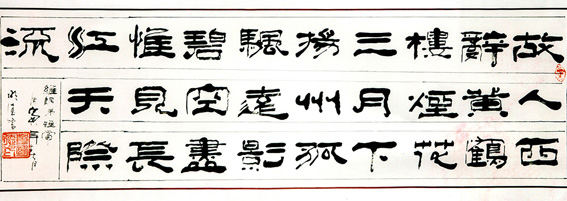 故人西
辭黃鶴
樓煙花
三月下
揚州孤
颿遠影
碧空盡
惟見長
江天際
流